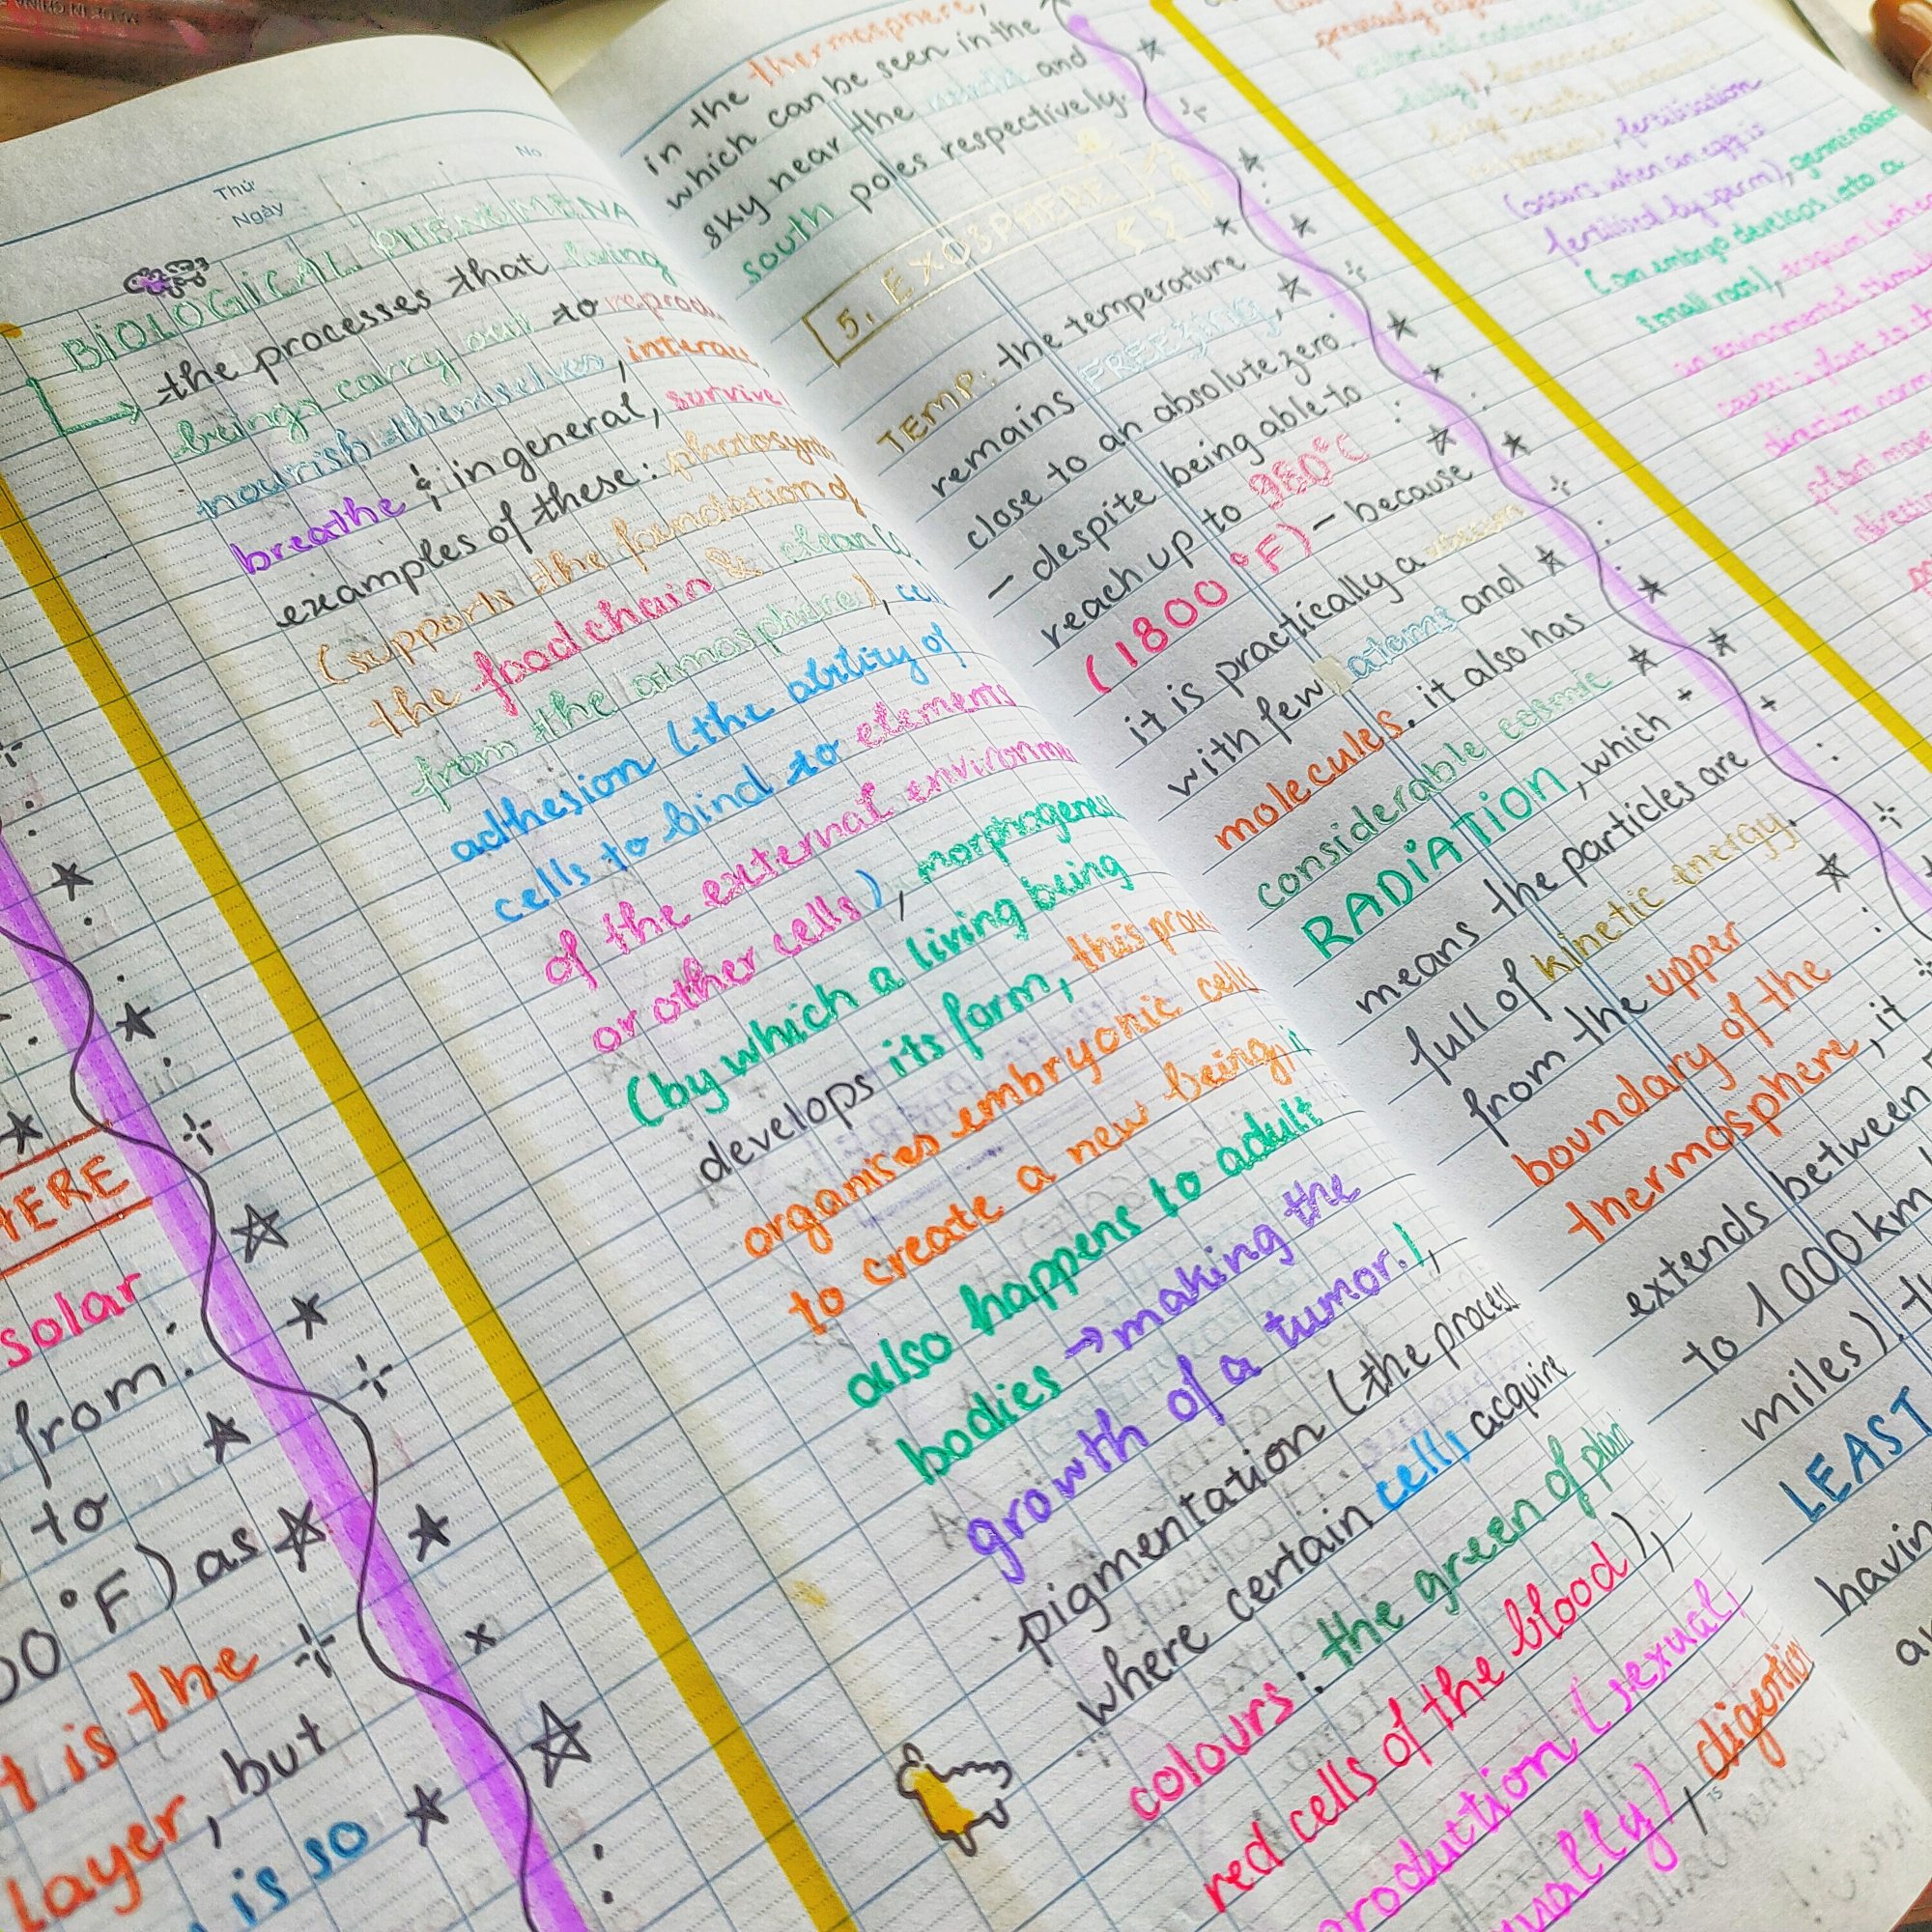 MADE IN CHINA
TERE
solar
from
to
°F) as
t is the
layer, but
is so
Thứ
Ngày
No.
BIOLOGICAL PHENOMENA
the processes that living
beings carry out to reprodu
nourish themselves, interac
breathe & in general, survive
examples of these: photosyn
(supports the foundation of
the food chain & clean
from the atmosphere), cel
adhesion (the ability of
cells to bind to elements
of the external environme
or other cells), morphogenes
(by which a living being
develops its form, this proc
organises embryonic cells
to create a new being, i
also happens to adult
bodies → making the
growth of a tumor.),
pigmentation (the process
where certain cells acquire
colours: the green of plan
red cells of the blood),
production (sexual,
ually), digestion
in the thermosphere,
which can be seen in the
sky near the north and
south poles respectively.
5. EXOSPHERE
TEMP: the temperature
remains FREEZING,
close to an absolute zero.
- despite being able to
reach up to 980°C
(1800°F) - because
it is practically a
with few atoms and
molecules. it also has
considerable cosmic
RADIATION, which
means the particles are
full of kinetic energy.
from the upper
boundary of the
thermosphere, it
extends between
to 1000km
miles).
LEAST
havin
fertilisation
(occurs when an egg is
fertilised by sperm), germination
(an embryo develops into a
small root), tropism
an environmental stimul
causes a plant to
direction
plant mov